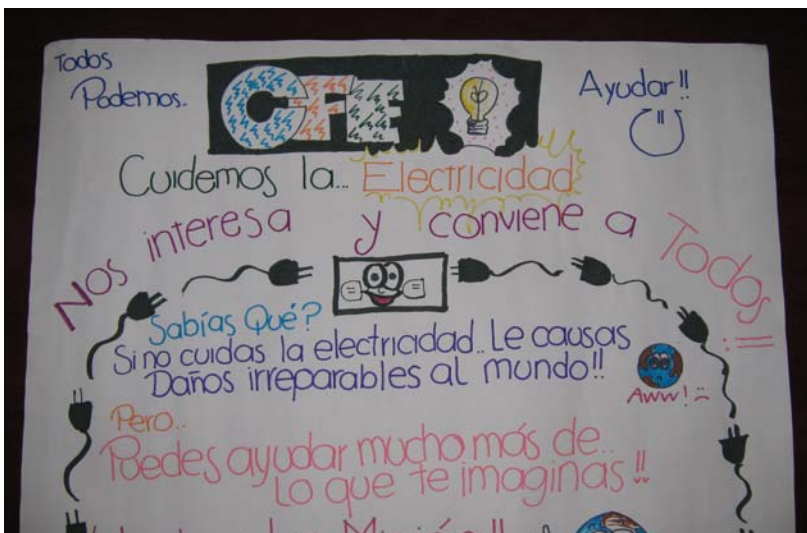 Todos
Podemos..
CFE
Ayudar!!
Cuidemos la... Electricidad
Nos interesa y conviene a Todos!!
Sabías Qué?
Si no cuidas la electricidad.. Le causas
Daños irreparables al mundo!!
Aww!
Pero..
Puedes ayudar mucho más de..
Lo que te imaginas!!